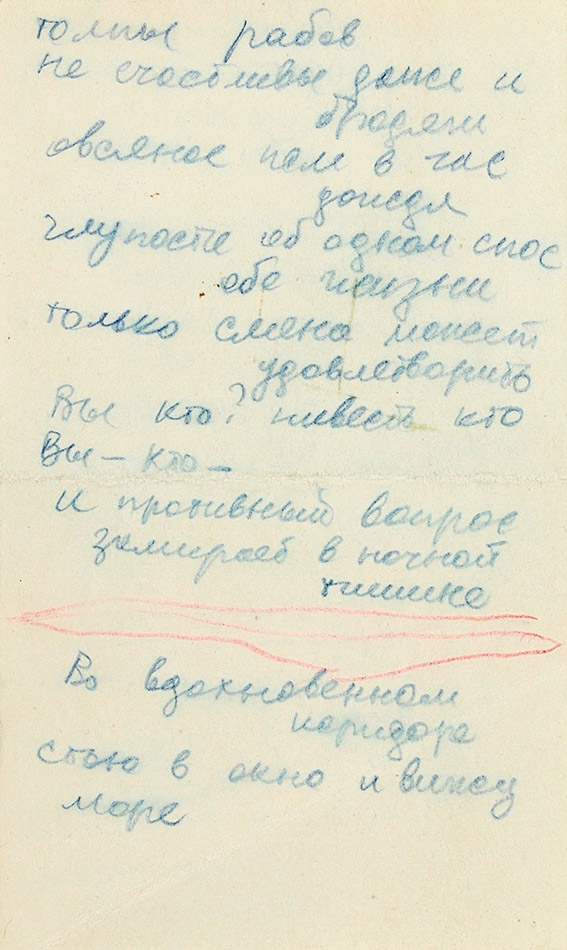 толпы рабов
не счастливы даже и
бродяги
овсяное пем в час
дождя
глупости об одном спос
обе жизни
только смена может
удовлетворить
Вы кто? нивесть кто
Вы – кто –
и противный вопрос
замирает в ночной
тишине
Во вдохновенном
коридоре
стою в окно и вижу
море